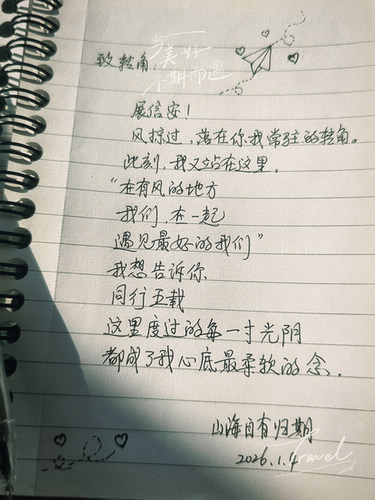 与美好
不期而遇
致转角:
展信安!
风掠过,落在你我常驻的转角。
此刻,我又站在这里,
“在有风的地方
我们,在一起
遇见最好的我们”
我想告诉你
同行五载
这里度过的每一寸光阴
都成了我心底最柔软的念.
山海自有归期
2026.1.4
Travel